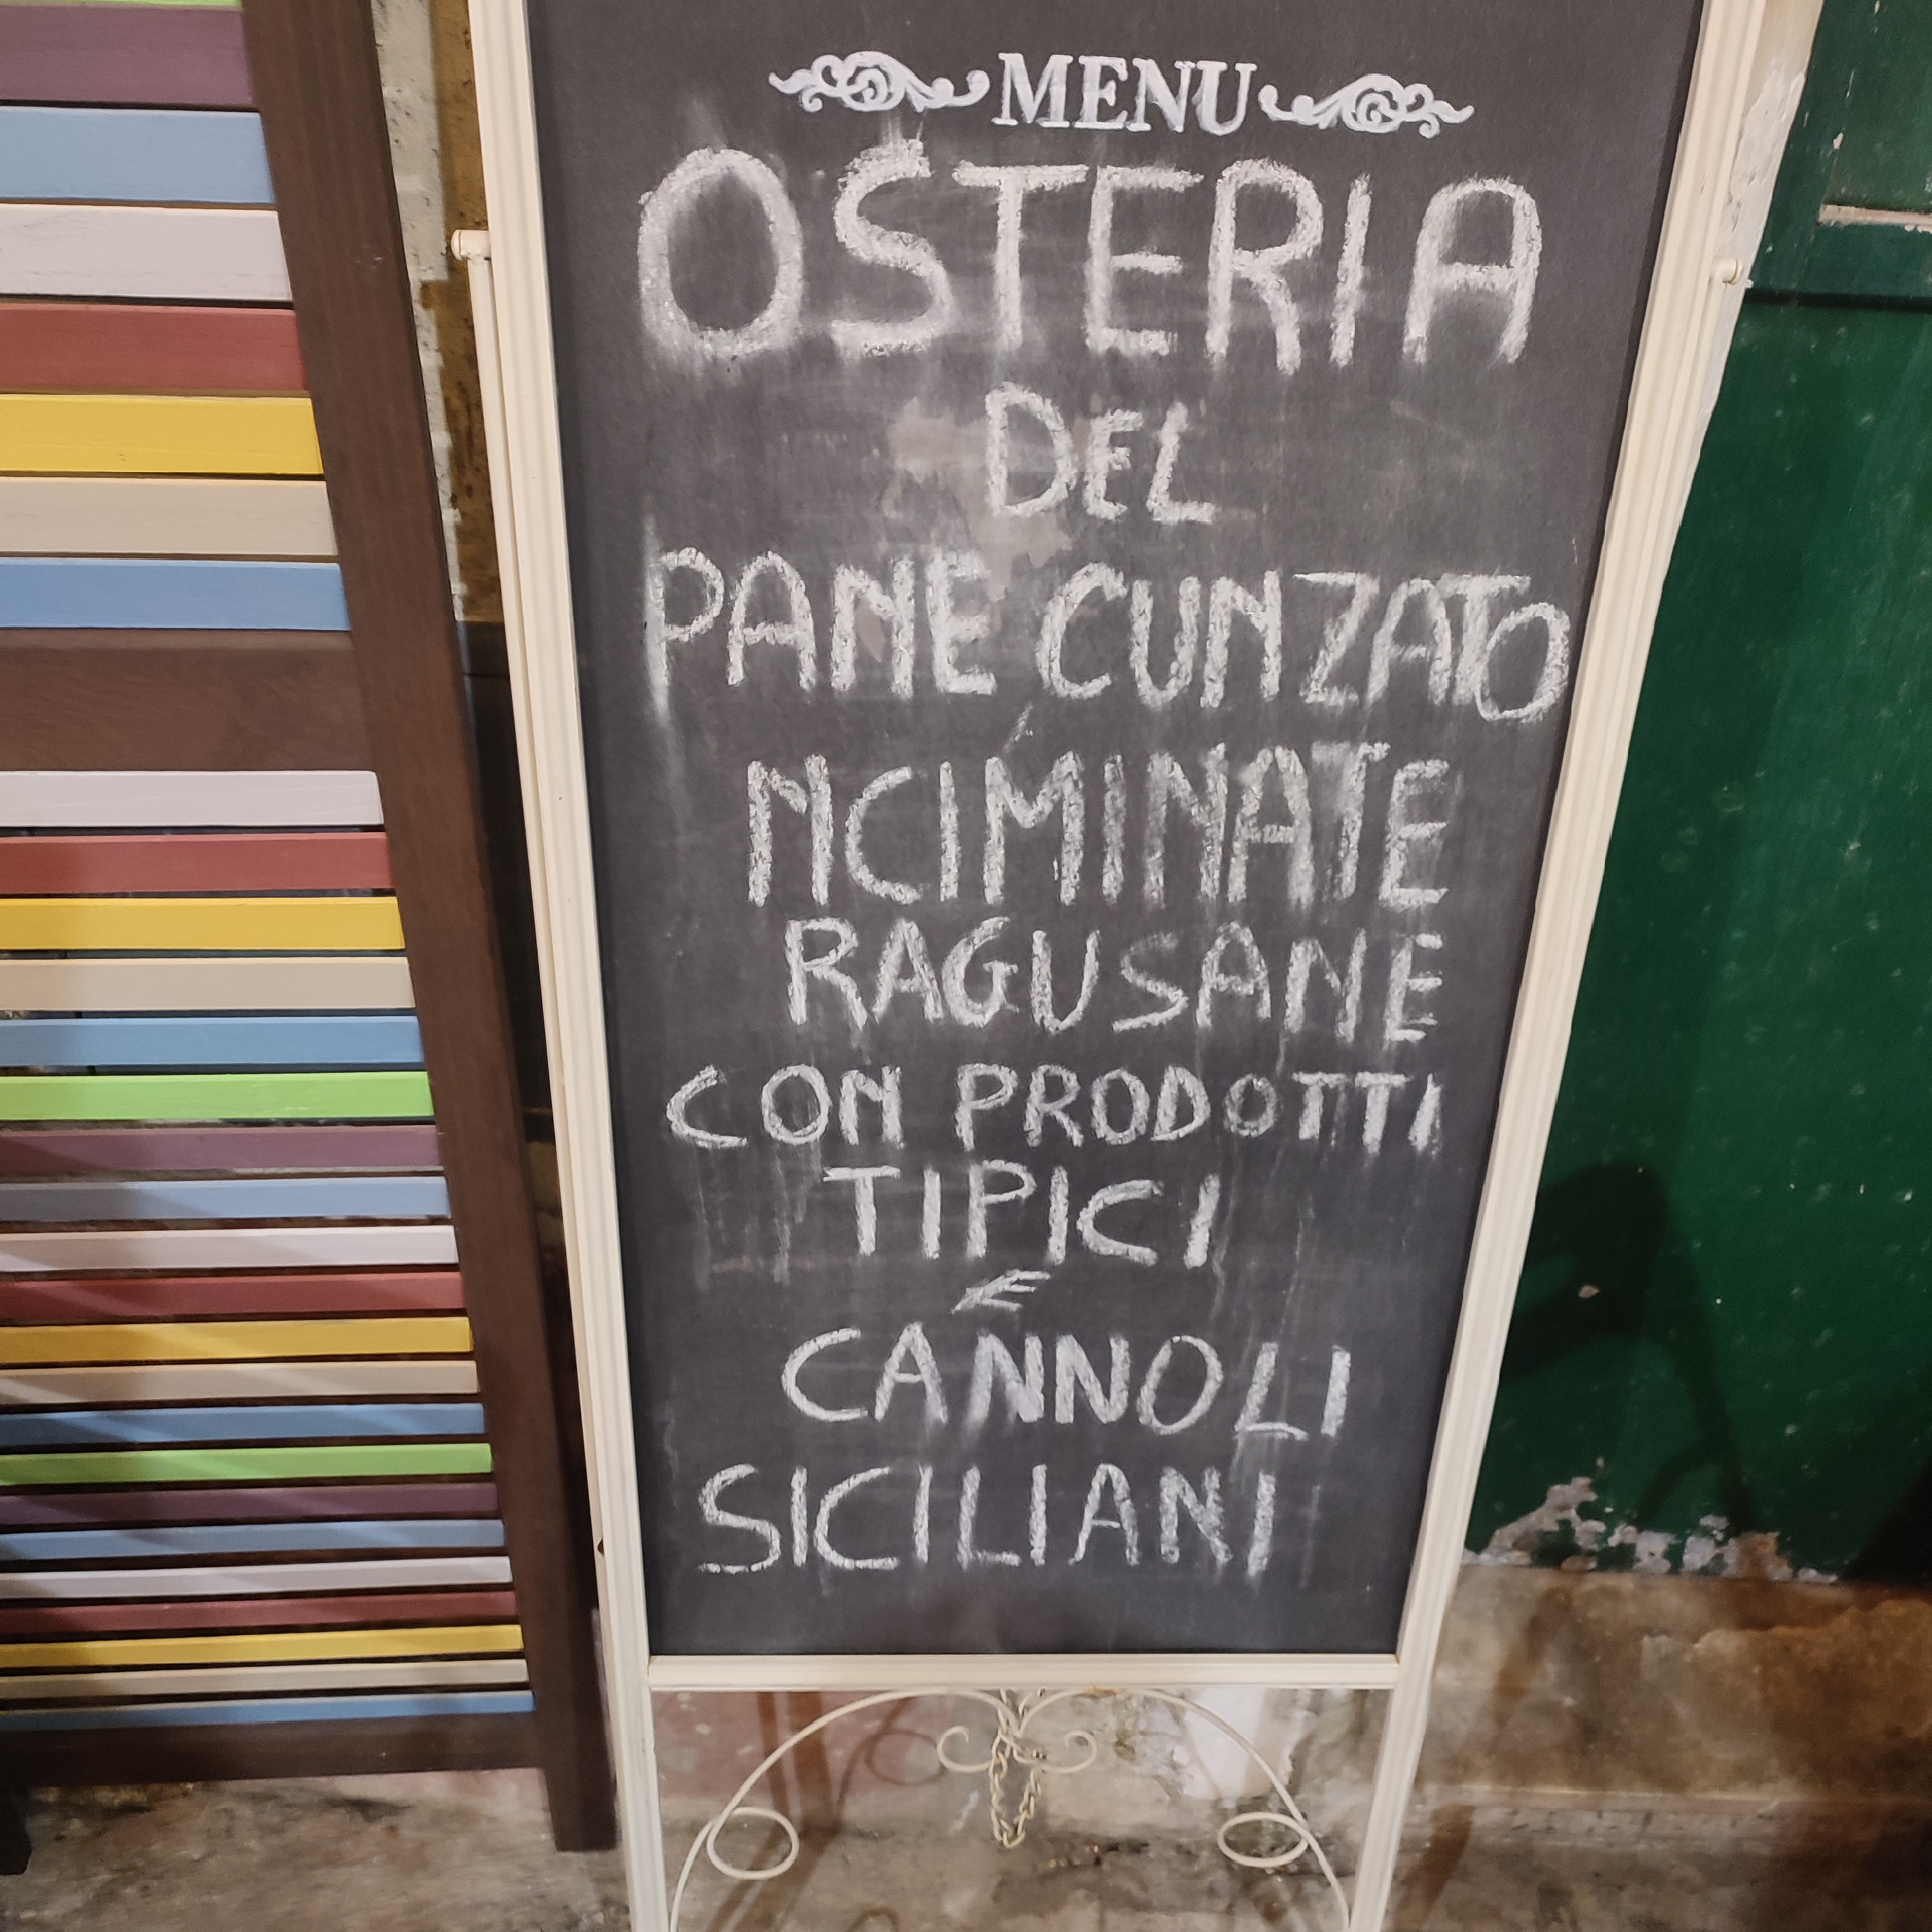 MENU
OSTERIA
DEL
PANE CUNZATO
NCIMINATE
RAGUSANE
CON PRODOTTI
TIPICI
E
CANNOLI
SICILIANI